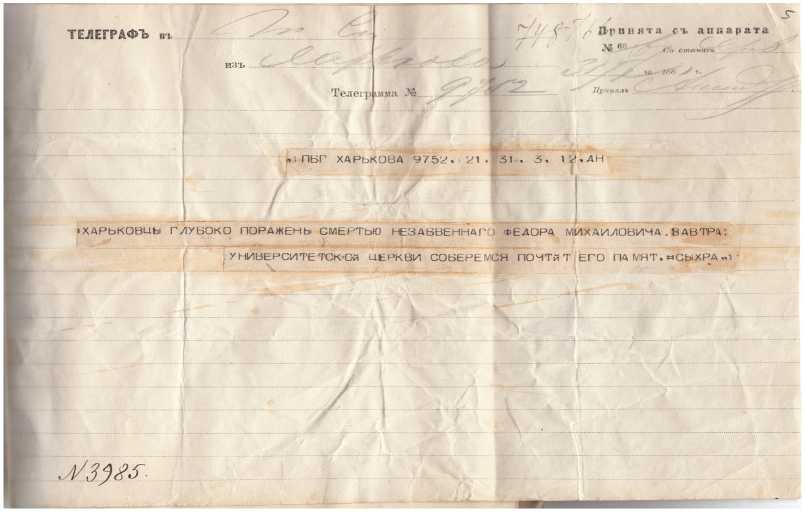 ТЕЛЕГРАФЪ въ
5
Принята съ аппарата
№
Со станціи
изъ Харькова
Телеграмма № 9752
Принялъ
ПБГ ХАРЬКОВА 9752. 21. 31. 3. 12. АН
ХАРЬКОВЦЫ ГЛУБОКО ПОРАЖЕНЬ СМЕРТЬЮ НЕЗАБВЕННАГО ФЕДОРА МИХАИЛОВИЧА. ЗАВТРА:
УНИВЕРСИТЕТСКОЙ ЦЕРКВИ СОБЕРЕМСЯ ПОЧТЯТ ЕГО ПАМЯТ.=СЫХРА
N3985.